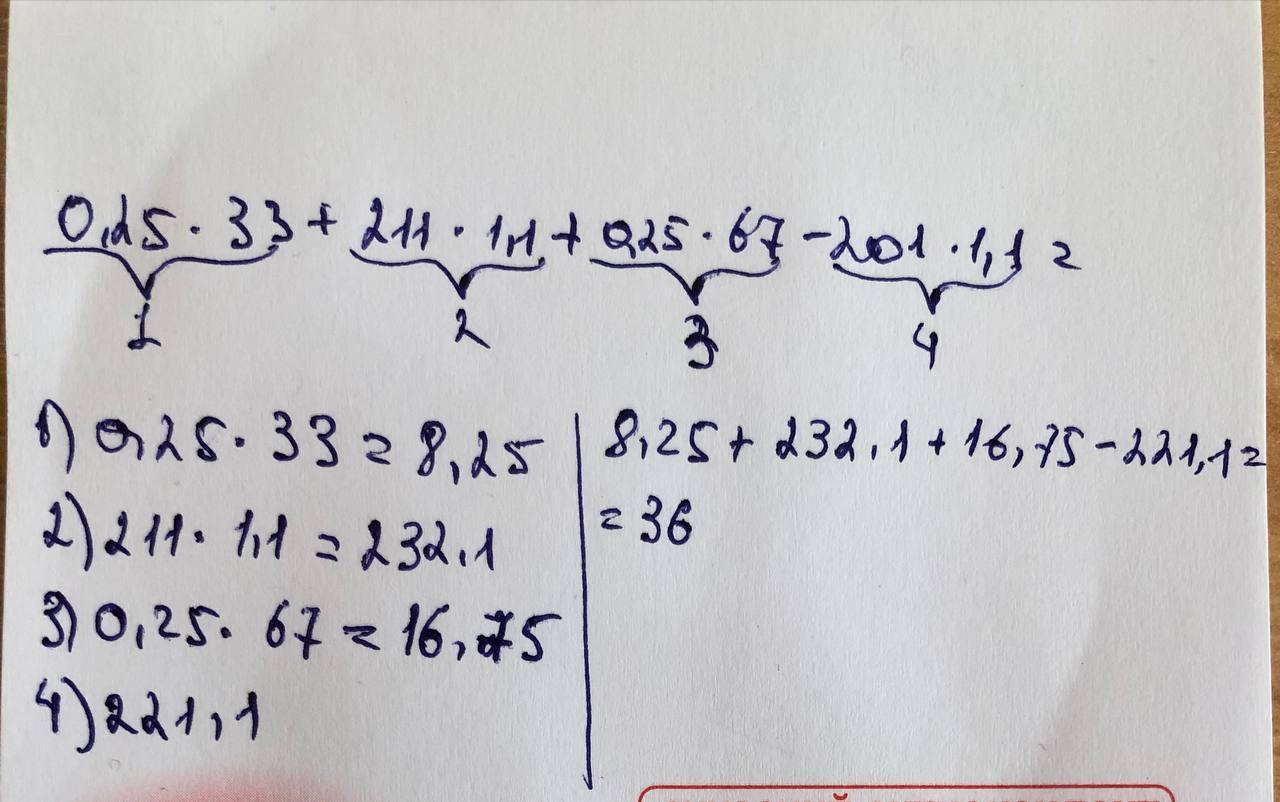 0,25 · 33 + 211 · 1,1 + 0,25 · 67 - 201 · 1,1 =
1 2 3 4
1) 0,25 · 33 = 8,25
2) 211 · 1,1 = 232,1
3) 0,25 · 67 = 16,75
4) 221,1
8,25 + 232,1 + 16,75 - 221,1 =
= 36